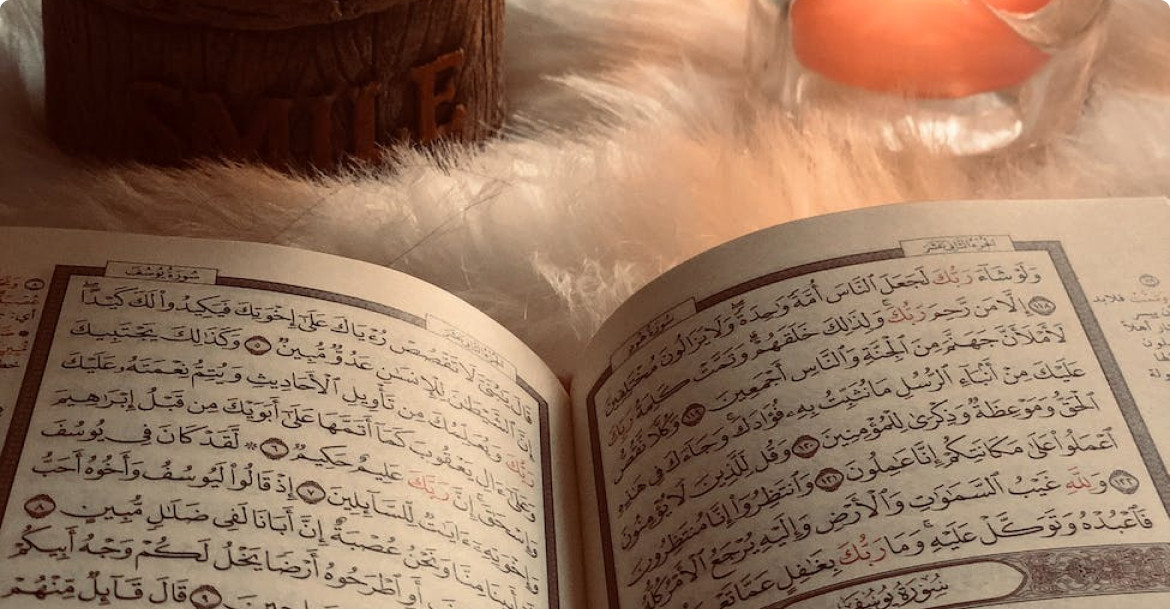 SMILE
الجُزءُ الثَّانِي عَشَرَ
سُورَةُ هُودٍ
وَلَوْ شَآءَ رَبُّكَ لَجَعَلَ ٱلنَّاسَ أُمَّةً وَٰحِدَةً وَلَا يَزَالُونَ مُخْتَلِفِينَ
١١٨ إِلَّا مَن رَّحِمَ رَبُّكَ وَلِذَٰلِكَ خَلَقَهُمْ وَتَمَّتْ كَلِمَةُ رَبِّكَ
لَأَمْلَأَنَّ جَهَنَّمَ مِنَ ٱلْجِنَّةِ وَٱلنَّاسِ أَجْمَعِينَ ١١٩ وَكُلًّا نَّقُصُّ
عَلَيْكَ مِنْ أَنۢبَآءِ ٱلرُّسُلِ مَا نُثَبِّتُ بِهِۦ فُؤَادَكَ وَجَآءَكَ فِي هَٰذِهِ
ٱلْحَقُّ وَمَوْعِظَةٌ وَذِكْرَىٰ لِلْمُؤْمِنِينَ ١٢٠ وَقُل لِّلَّذِينَ لَا يُؤْمِنُونَ
ٱعْمَلُوا۟ عَلَىٰ مَكَانَتِكُمْ إِنَّا عَٰمِلُونَ ١٢١ وَٱنتَظِرُوٓا۟ إِنَّا مُنتَظِرُونَ
١٢٢ وَلِلَّهِ غَيْبُ ٱلسَّمَٰوَٰتِ وَٱلْأَرْضِ وَإِلَيْهِ يُرْجَعُ ٱلْأَمْرُ كُلُّهُ
فَٱعْبُدْهُ وَتَوَكَّلْ عَلَيْهِ وَمَا رَبُّكَ بِغَٰفِلٍ عَمَّا
سُورَةُ يُوسُفَ
الجُزءُ الثَّانِي عَشَرَ
سُورَةُ يُوسُفَ
قَالَ يَٰبُنَيَّ لَا تَقْصُصْ رُءْيَاكَ عَلَىٰٓ إِخْوَتِكَ فَيَكِيدُوا۟ لَكَ كَيْدًا
إِنَّ ٱلشَّيْطَٰنَ لِلْإِنسَٰنِ عَدُوٌّ مُّبِينٌ ٥ وَكَذَٰلِكَ يَجْتَبِيكَ
رَبُّكَ وَيُعَلِّمُكَ مِن تَأْوِيلِ ٱلْأَحَادِيثِ وَيُتِمُّ نِعْمَتَهُۥ عَلَيْكَ
وَعَلَىٰٓ ءَالِ يَعْقُوبَ كَمَآ أَتَمَّهَا عَلَىٰٓ أَبَوَيْكَ مِن قَبْلُ إِبْرَٰهِيمَ
وَإِسْحَٰقَ إِنَّ رَبَّكَ عَلِيمٌ حَكِيمٌ ٦ ۞ لَّقَدْ كَانَ فِي يُوسُفَ
وَإِخْوَتِهِۦٓ ءَايَٰتٌ لِّلسَّآئِلِينَ ٧ إِذْ قَالُوا۟ لَيُوسُفُ وَأَخُوهُ أَحَبُّ
إِلَىٰٓ أَبِينَا مِنَّا وَنَحْنُ عُصْبَةٌ إِنَّ أَبَانَا لَفِي ضَلَٰلٍ مُّبِينٍ ٨
أَوِ ٱطْرَحُوهُ أَرْضًا يَخْلُ لَكُمْ وَجْهُ أَبِيكُمْ
٩ قَالَ قَآئِلٌ مِّنْهُمْ